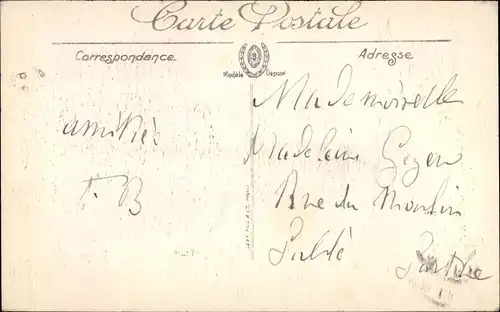 Carte Postale
Correspondance
Adresse
Modèle Déposé
amitiés
F. B
Mademoiselle
Madeleine
Rue du Moulin
Sablé
Sarthe